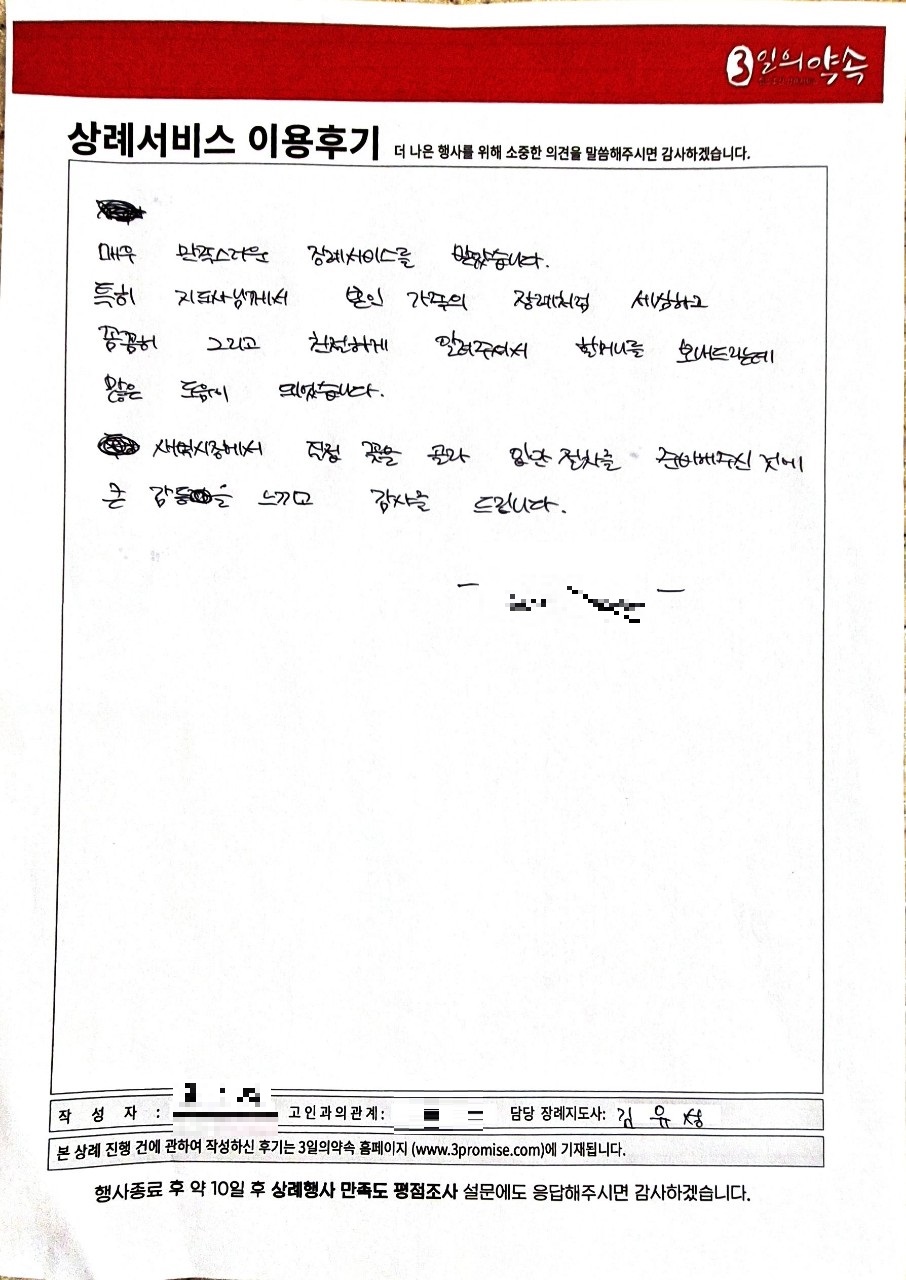 3일의약속
상례서비스 이용후기 더 나은 행사를 위해 소중한 의견을 말씀해주시면 감사하겠습니다.
매우 만족스러운 장례서비스를 받았습니다.
특히 지도사님께서 본인 가족의 장례처럼 세밀하고
꼼꼼히 그리고 친절하게 알려주셔서 할머니를 보내드리는데
많은 도움이 되었습니다.
새벽시장에서 직접 꽃을 골라 입관 절차를 준비해주신 것에
큰 감동을 느끼고 감사를 드립니다.
작성자 :
고인과의관계 :
담당 장례지도사: 김유성
본 상례 진행 건에 관하여 작성하신 후기는 3일의약속 홈페이지 (www.3promise.com)에 기재됩니다.
행사종료 후 약 10일 후 상례행사 만족도 평점조사 설문에도 응답해주시면 감사하겠습니다.